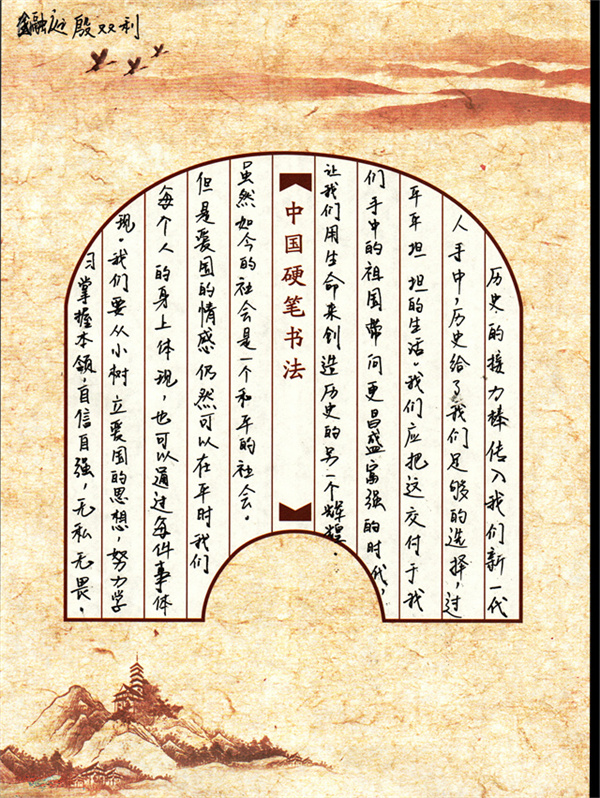 殷双利
历史的接力棒传入我们新一代
人手中，历史给了我们足够的选择，过
平平坦坦的生活。我们应把这交付于我
们手中的祖国带向更昌盛富强的时代，
让我们用生命来创造历史的另一个辉煌．
中国硬笔书法
虽然如今的社会是一个和平的社会。
但是爱国的情感仍然可以在平时我们
每个人的身上体现，也可以通过每件事体
现。我们要从小树立爱国的思想，努力学
习掌握本领，自信自强，无私无畏，